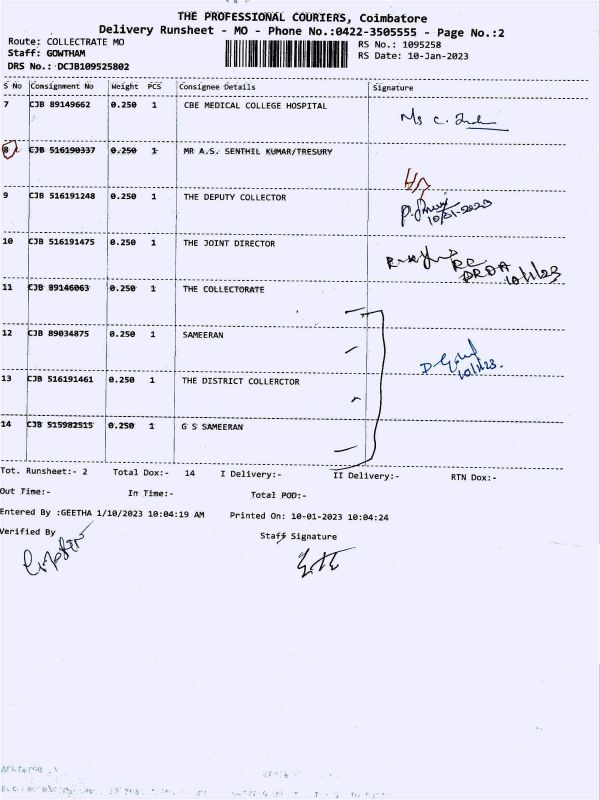 THE PROFESSIONAL COURIERS, Coimbatore
Delivery Runsheet - MO - Phone No.:0422-3505555 - Page No.:2
Route: COLLECTRATE MO
Staff: GOWTHAM
DRS No.: DCJB109525802
RS No.: 1095258
RS Date: 10-Jan-2023
S No Consignment No Weight PCS Consignee Details Signature
7 CJB 89149662 0.250 1 CBE MEDICAL COLLEGE HOSPITAL
Ms C.
8 CJB 516190337 0.250 1 MR A.S. SENTHIL KUMAR/TRESURY
9 CJB 516191248 0.250 1 THE DEPUTY COLLECTOR
10/01-2023
10 CJB 516191475 0.250 1 THE JOINT DIRECTOR
DRDA 10/1/23
11 CJB 89146063 0.250 1 THE COLLECTORATE
12 CJB 89034875 0.250 1 SAMEERAN
10/1/23.
13 CJB 516191461 0.250 1 THE DISTRICT COLLERCTOR
14 CJB 515982515 0.250 1 G S SAMEERAN
Tot. Runsheet:- 2 Total Dox:- 14 I Delivery:- II Delivery:- RTN Dox:-
Out Time:- In Time:- Total POD:-
Entered By :GEETHA 1/10/2023 10:04:19 AM Printed On: 10-01-2023 10:04:24
Verified By Staff Signature